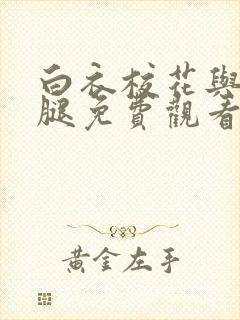 白衣校花與
腿免費觀看
黃金左手